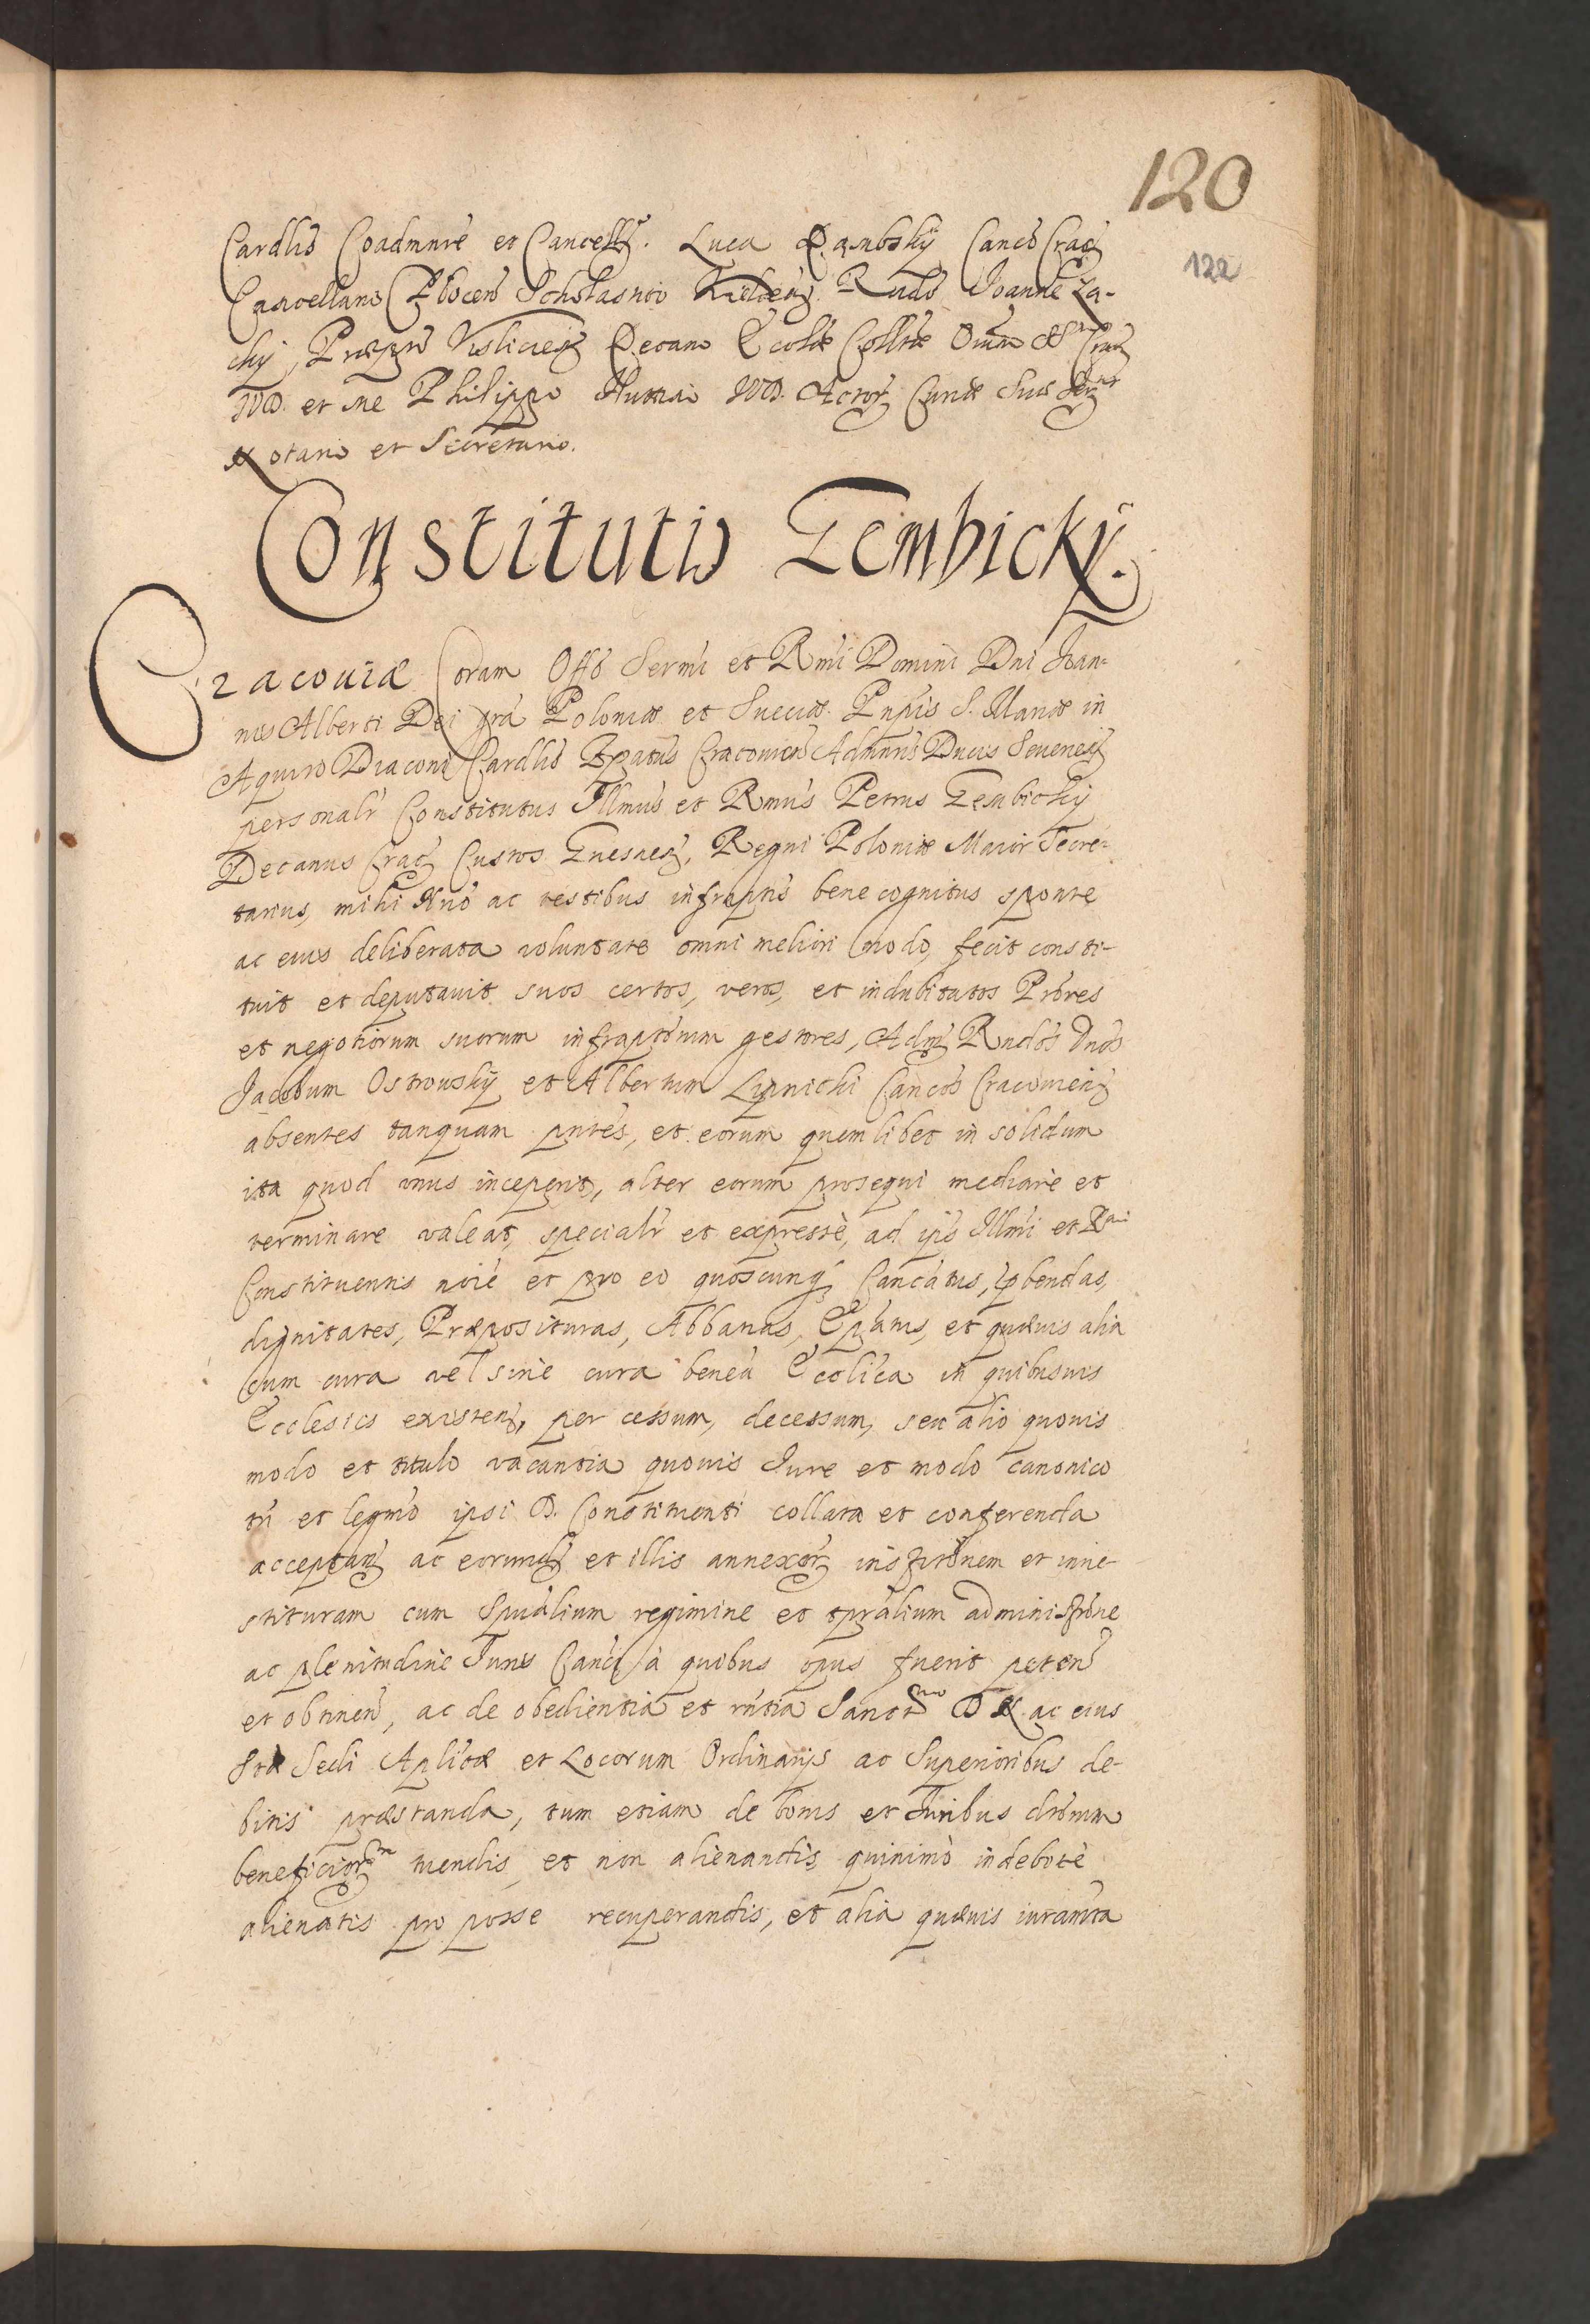 120
122
Cardlis Coadmnre et Cancell. Luca Dąmbsky Canco Crac
Cancellario Plocen Scholastico Kielcen Rndo Joanne Za-
chy, Præpto Visliciens Decano Ecclæ Collæ Omm SS Crac
JVD. et me Philippo JVD. Actor Curiæ Suæ Ser
Notario et Secretario.
Constitutio Gembicky.
Cracouiæ Coram Offo Sermi et Rmi Domini Dni Joan-
nis Alberti Dei gra Poloniæ et Sueciæ Pnpis S. Mariæ in
Aquiro Diaconi Cardlis Epatus Cracouien Admnris Ducis Seuerien
personalr Constitutus Illmus et Rmus Petrus Gembicky
Decanus Crac Custos Gnesnen, Regni Poloniæ Maior Secre-
tarius, mihi Nrio ac testibus infraptis bene cognitus sponte
ac eius deliberata voluntate omni meliori modo, fecit consti-
tuit et deputauit suos certos, veros, et indubitatos Prores
et negotiorum suorum infraptorum gestores, Adm Rndos Dnos
Jacobum Ostrousky et Albertum Lipnicki Cancos Cracouien
absentes tanquam pntes, et eorum quemlibet in solidum
ita quod vnus inceperit, alter eorum prosequi mediare et
terminare valeat, specialr et expresse, ad ips Illmi et Rmi
Constituentis noie et pro eo quoscunq Cancatus, pbendas,
dignitates, Præposituras, Abbatias, Epatus, et quæuis alia
cum cura vel sine cura benea Ecclica in quibusuis
Ecclesijs existen, per cessum, decessum, seu alio quouis
modo et titulo vacantia quouis Jure et modo canonico
tn et legmo ipsi D. Constituenti collata et conferenda
acceptan ac eorund et illis annexor institonem et inue-
stituram cum Spualium regimine et tpralium administrone
ac plenitudine Juris Canci à quibus opus fuerit peten
et obtinen, ac de obedientia et rntia Sanctmo D N. ac eius
Stæ Sedi Aplicæ et Locorum Ordinarijs ac Superioribus de-
bitis præstanda, tum etiam de bonis et Juribus dictorum
beneficiorum tuendis, et non alienandis quinimò indebitè
alienatis pro posse recuperandis, et alia quæuis iuramta